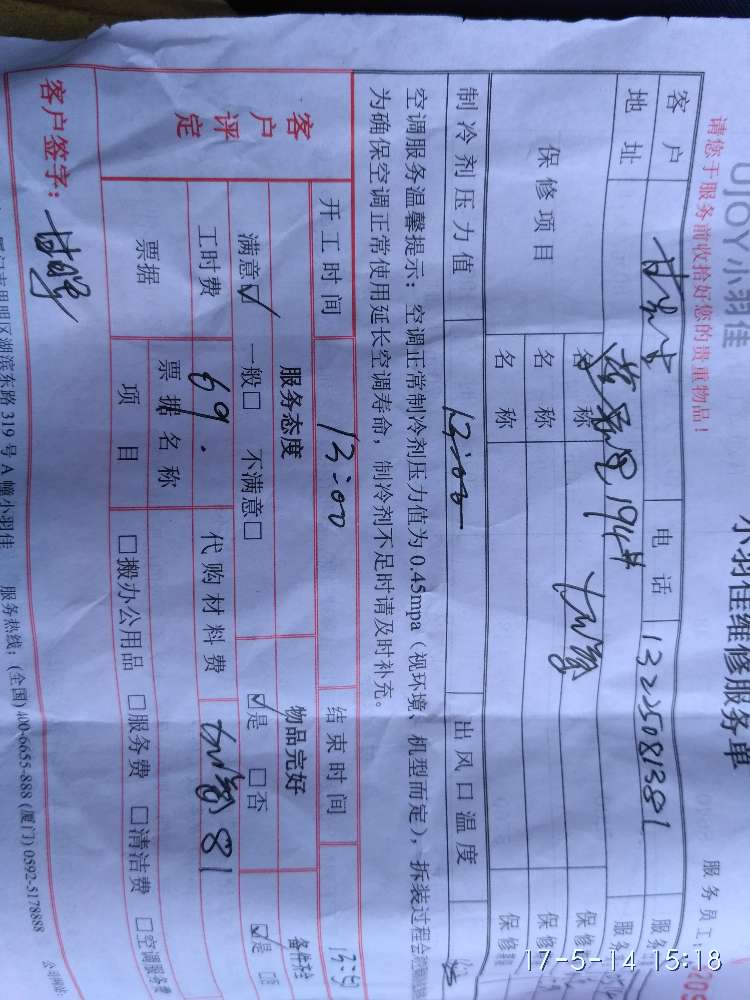 UJOY小羽佳
小羽佳维修服务单
请您于服务前收拾好您的贵重物品！
服务员工：
客户
电话 13225081381
地址
194#
保修项目
名称
名称
名称
保修
保修
保修
制冷剂压力值 12:00 出风口温度
空调服务温馨提示：空调正常制冷剂压力值为0.45mpa（视环境、机型而定），拆装过程会
为确保空调正常使用延长空调寿命，制冷剂不足时请及时补充。
客户评定
开工时间 12:00 结束时间
服务态度 物品完好
满意☑ 一般□ 不满意□ ☑是 □否 ☑是 □否
工时费 69. 代购材料费 加氟81
票据 票据名称
项目 □搬办公用品 □服务费 □清洁费 □空调服务费
客户签字：
区湖滨东路319号A幢小羽佳 服务热线：(全国)400-6655-888 (厦门)0592-5178888
17-5-14 15:18